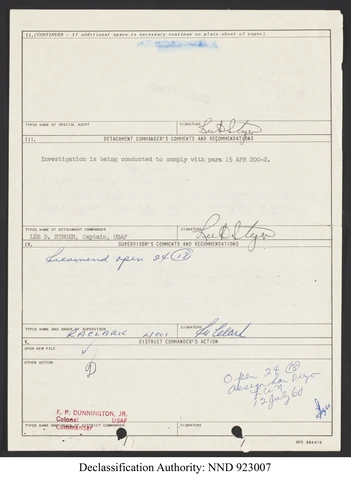 II. (CONTINUED - If additional space is necessary continue on plain sheet of paper)
TYPED NAME OF SPECIAL AGENT
SIGNATURE
III. DETACHMENT COMMANDER'S COMMENTS AND RECOMMENDATIONS
Investigation is being conducted to comply with para 15 AFR 200-2.
TYPED NAME OF DETACHMENT COMMANDER
LEE D. STEGER, Captain, USAF
SIGNATURE
IV. SUPERVISOR'S COMMENTS AND RECOMMENDATIONS
Recommend open 24
TYPED NAME AND GRADE OF SUPERVISOR
R A CLARK
SIGNATURE
V. DISTRICT COMMANDER'S ACTION
OPEN NEW FILE
OTHER ACTION
Open 24
assign San Diego
12 July 60
F. P. DUNNINGTON, JR.
Colonel USAF
Commander
TYPED NAME AND GRADE OF DISTRICT COMMANDER
SIGNATURE
GPO
Declassification Authority: NND 923007